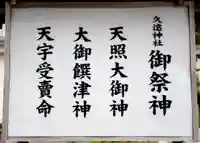 久延神社
御祭神
天照大御神
大御饌津神
天宇受賣命